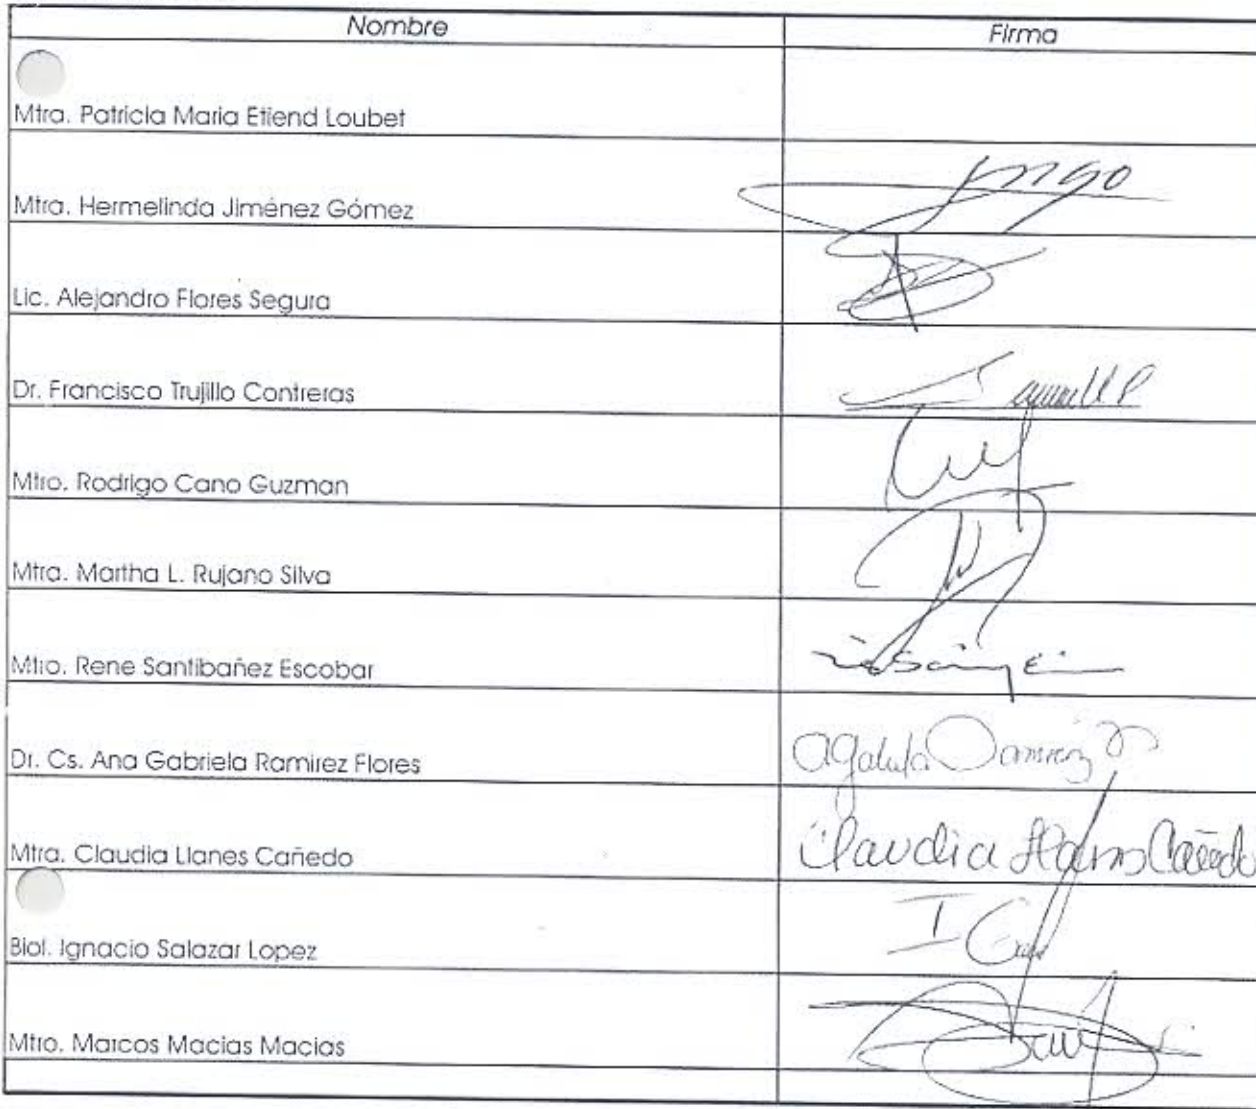 Nombre Firma
Mtra. Patricia Maria Etiend Loubet
Mtra. Hermelinda Jiménez Gómez
Lic. Alejandro Flores Segura
Dr. Francisco Trujillo Contreras
Mtro. Rodrigo Cano Guzman
Mtra. Martha L. Rujano Silva
Mtro. Rene Santibañez Escobar
Dr. Cs. Ana Gabriela Ramirez Flores
Mtra. Claudia Llanes Cañedo Claudia Llanes Cañedo
Biol. Ignacio Salazar Lopez
Mtro. Marcos Macias Macias